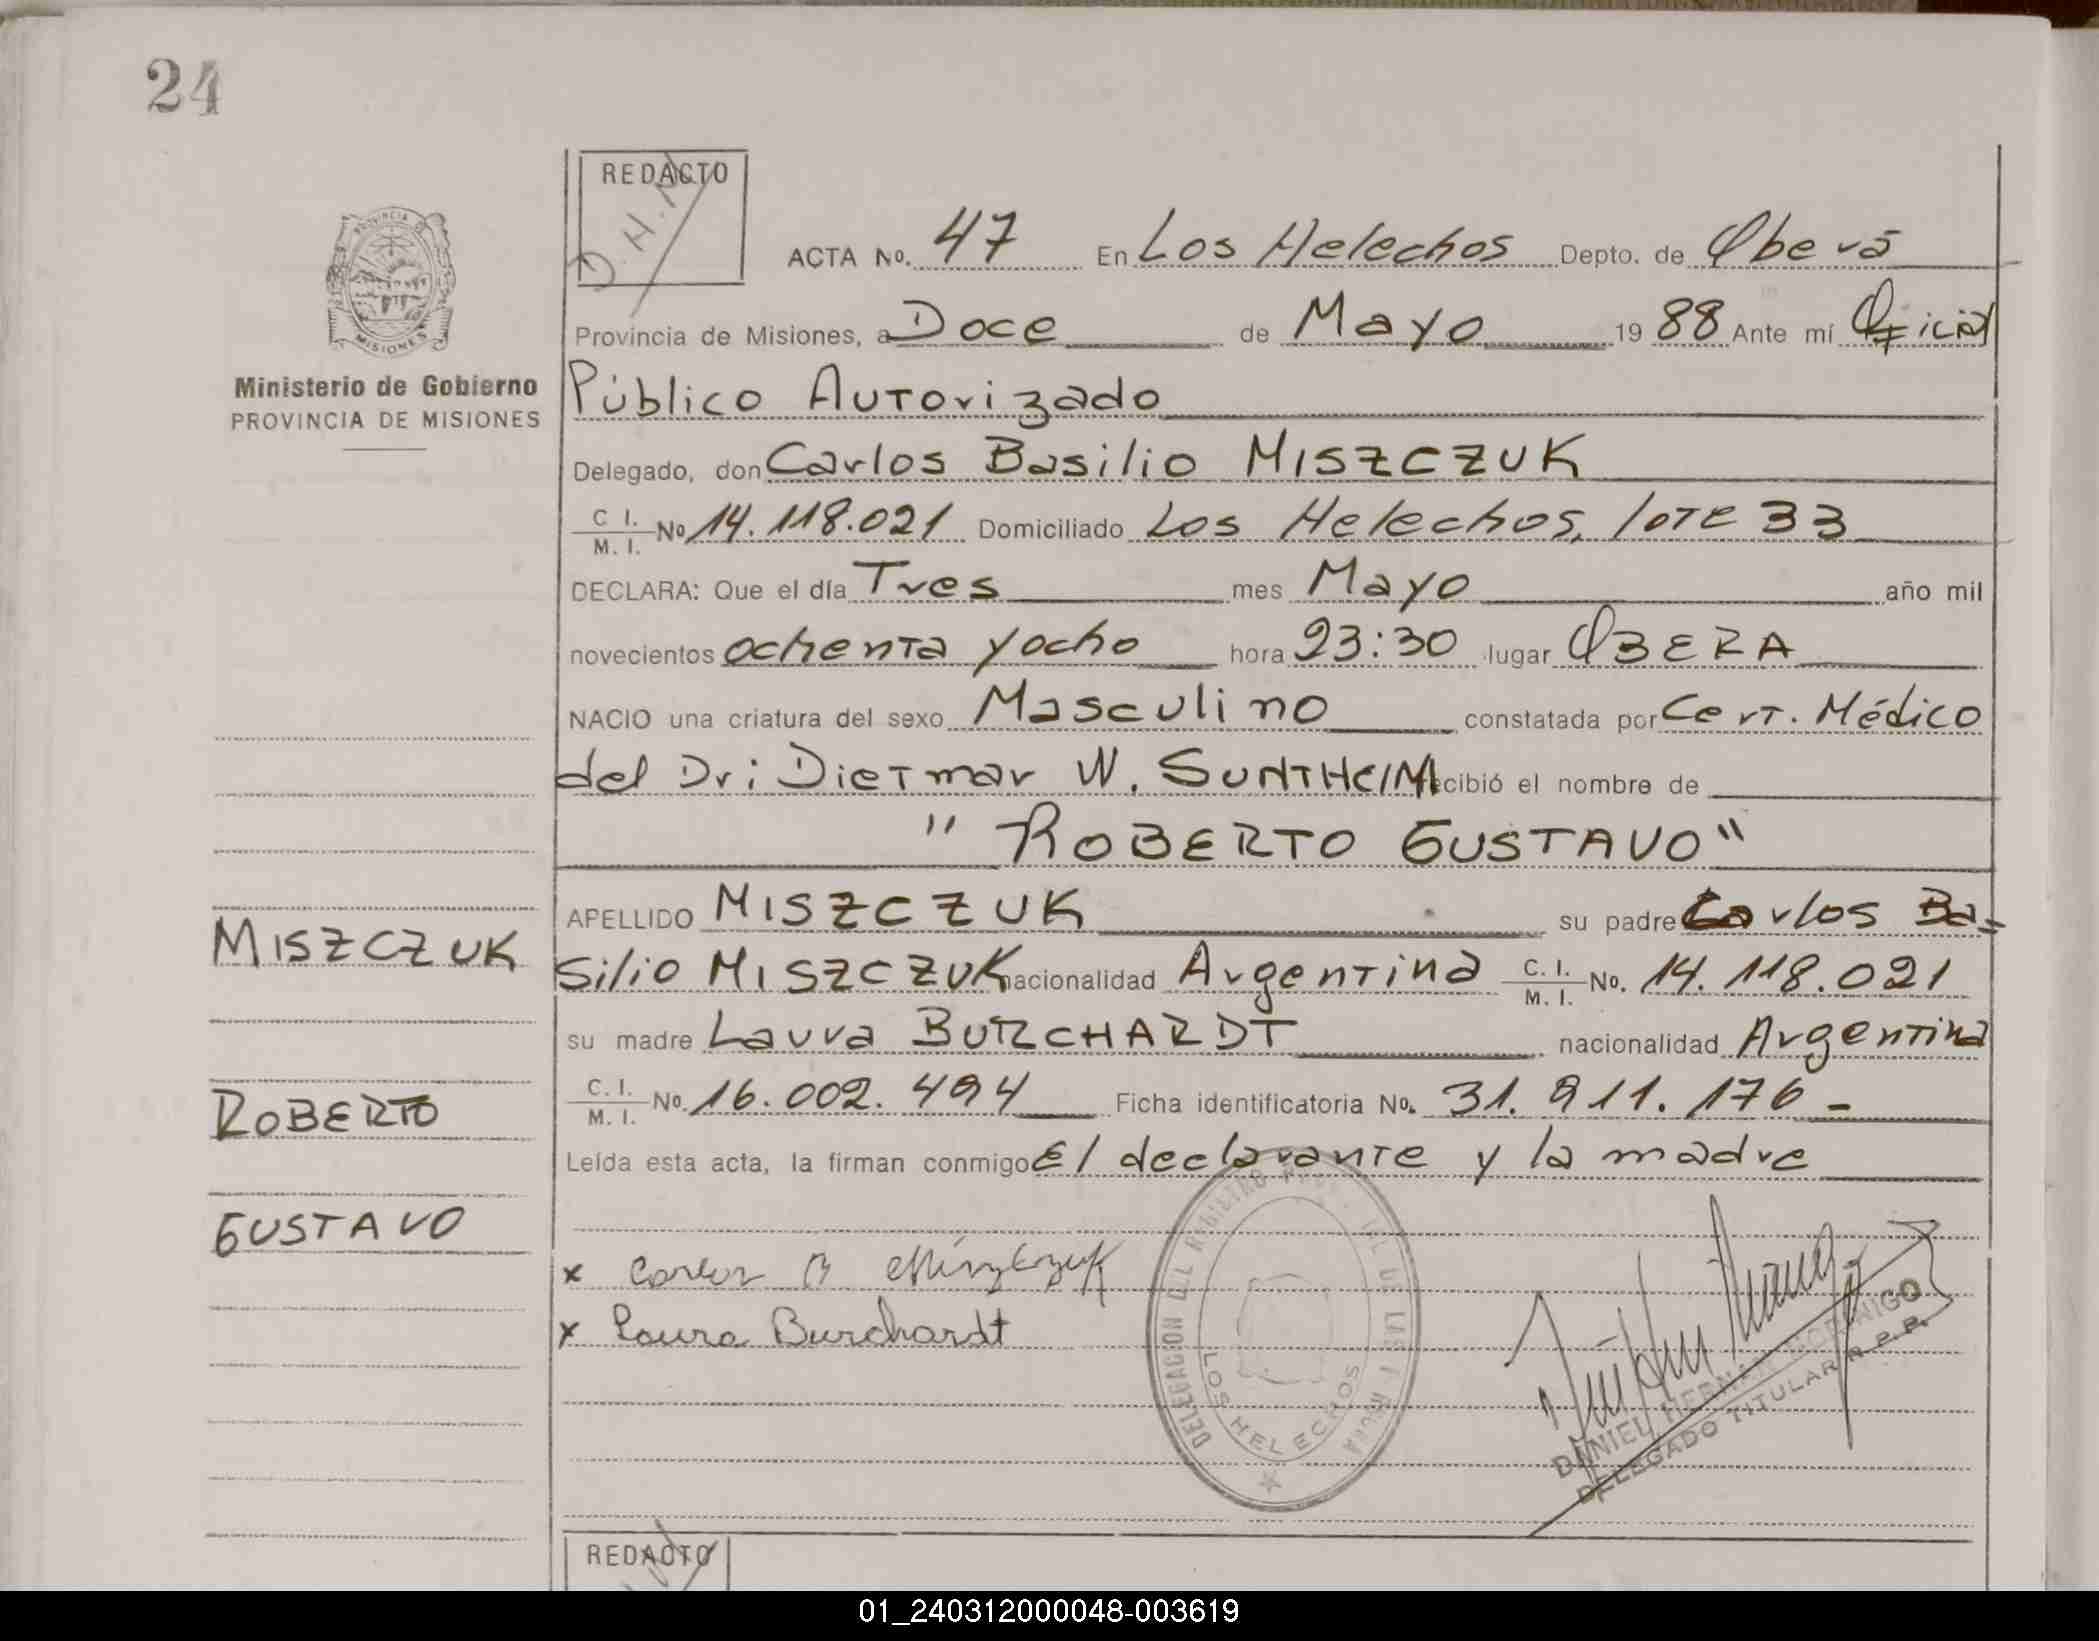 24
REDACTO
D.H.M
PROVINCIA DE
MISIONES
Ministerio de Gobierno
PROVINCIA DE MISIONES
ACTA No. 47 En Los Helechos Depto. de Oberá
Provincia de Misiones, a Doce de Mayo 19 88 Ante mí Oficial
Público Autorizado
Delegado, don Carlos Basilio MISZCZUK
C I. M. I. No 14.118.021 Domiciliado Los Helechos, lote 33
DECLARA: Que el día Tres mes Mayo año mil
novecientos ochenta y ocho hora 23:30 lugar OBERA
NACIO una criatura del sexo Masculino constatada por Cert. Médico
del Dr: Dietmar W. SUNTHEIM recibió el nombre de
"ROBERTO GUSTAVO"
APELLIDO MISZCZUK su padre Carlos Ba=
silio MISZCZUK nacionalidad Argentina C. I. M. I. No. 14.118.021
su madre Laura BURCHARDT nacionalidad Argentina
C. I. M. I. No. 16.002.494 Ficha identificatoria No. 31.911.176-
Leída esta acta, la firman conmigo El declarante y la madre
MISZCZUK
ROBERTO
GUSTAVO
x Carlos B Miszczuk
x Laura Burchardt
DELEGACION DEL REGISTRO DE LAS
LOS HELECHOS
DANIEL HERNAN
DELEGADO TITULAR R.P.P.
REDACTO
01_240312000048-003619